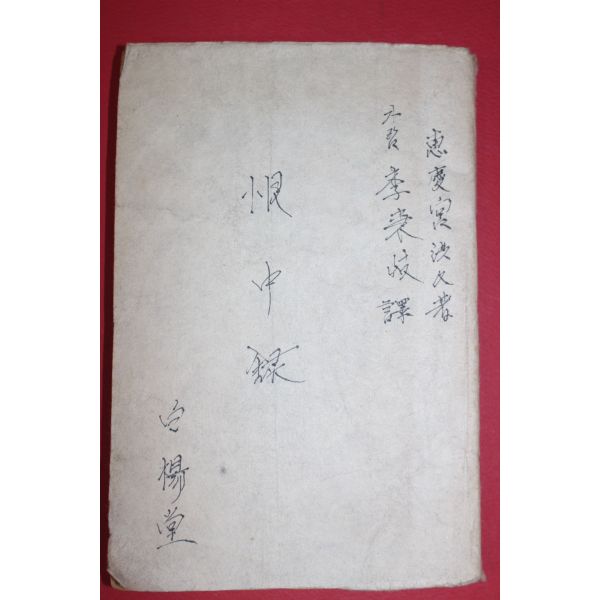 恵慶宮洪氏著
李秉岐 譯
恨中録
白楊堂